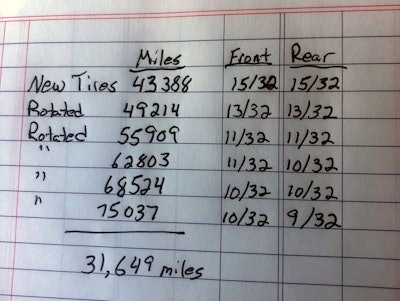 Miles Front Rear
New Tires 43388 15/32 15/32
Rotated 49214 13/32 13/32
Rotated 55909 11/32 11/32
" 62803 11/32 10/32
" 68524 10/32 10/32
" 75037 10/32 9/32
31,649 miles